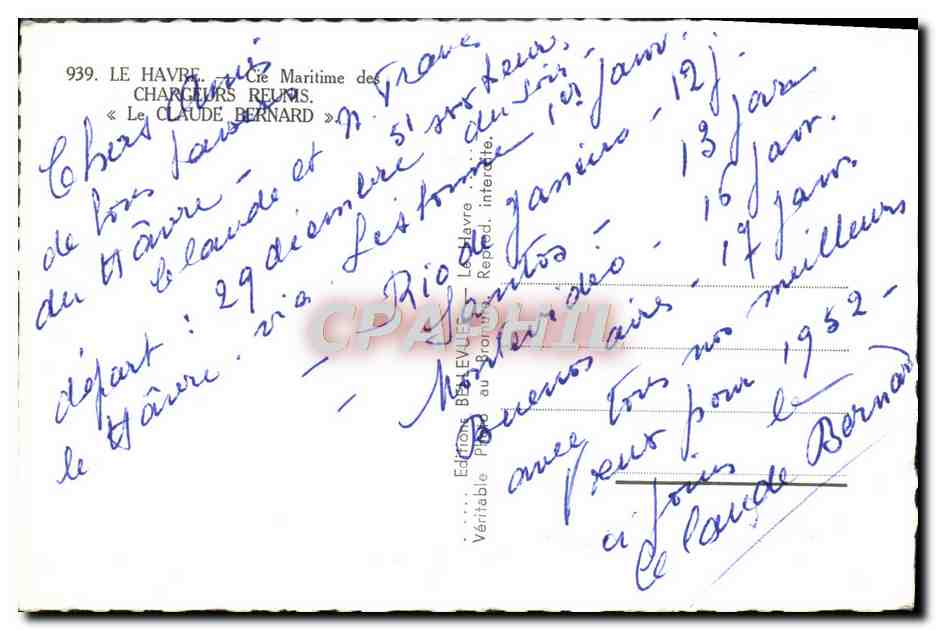 939. LE HAVRE. — Cie Maritime des
CHARGEURS REUNIS.
« Le CLAUDE BERNARD ».
Chers Amis
de tous
du Hâvre —
Claude et
départ : 29 décembre du soir —
le Hâvre. via Lisbonne 1er janv.
— Rio de Janeiro — 12 j.
— Santos — 13 janv
Montevideo — 16 janv.
Buenos aires — 17 janv
avec tous nos meilleurs
vœux pour 1952 —
ci joint le
Claude Bernard
Editions BELLEVUES — Le Havre
Véritable Photo au Bromure. Reprod. interdite.
CPAPHIL